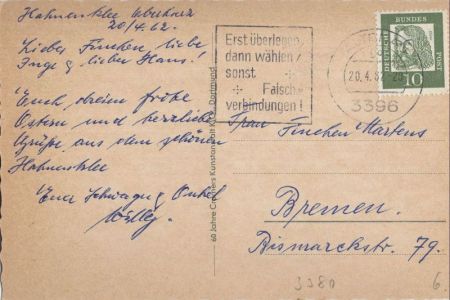 Hahnenklee Oberharz
20/4.62.
Lieber Finchen, liebe
Inge & lieber Hans!
Euch dreien frohe
Ostern und herzliche
Grüße aus dem schönen
Hahnenklee
Euer Schwager & Onkel
Willy.
60 Jahre Cramers Kunstanstalt KG. Dortmund
Erst überlegen,
dann wählen
sonst
Falsch-
verbindungen!
20.4.62-20
3396
DEUTSCHE BUNDES POST
10
Frau Finchen Martens
Bremen.
Bismarckstr. 79.
3380
6.